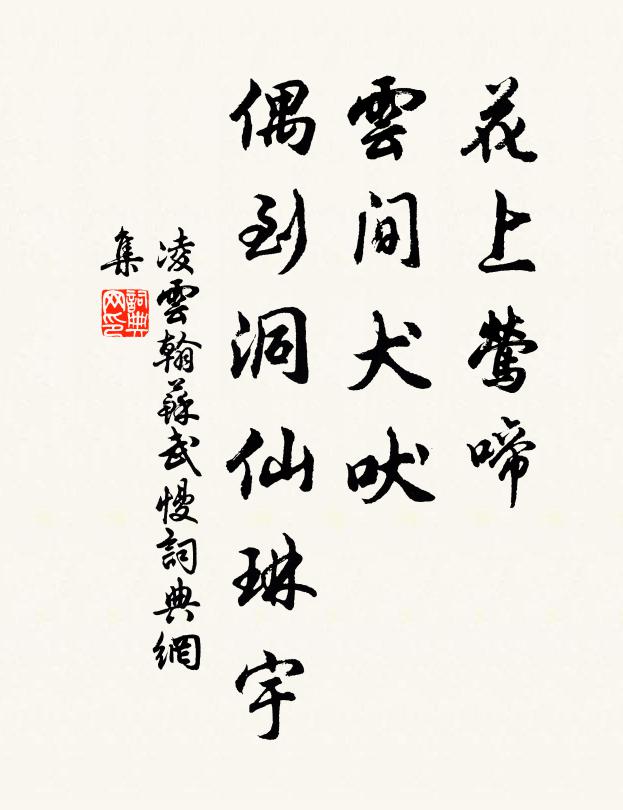 花上鶯啼
雲间犬吠
偶到洞仙琳宇
凌雲翰蘇武慢詞典網
集
詞典
网印